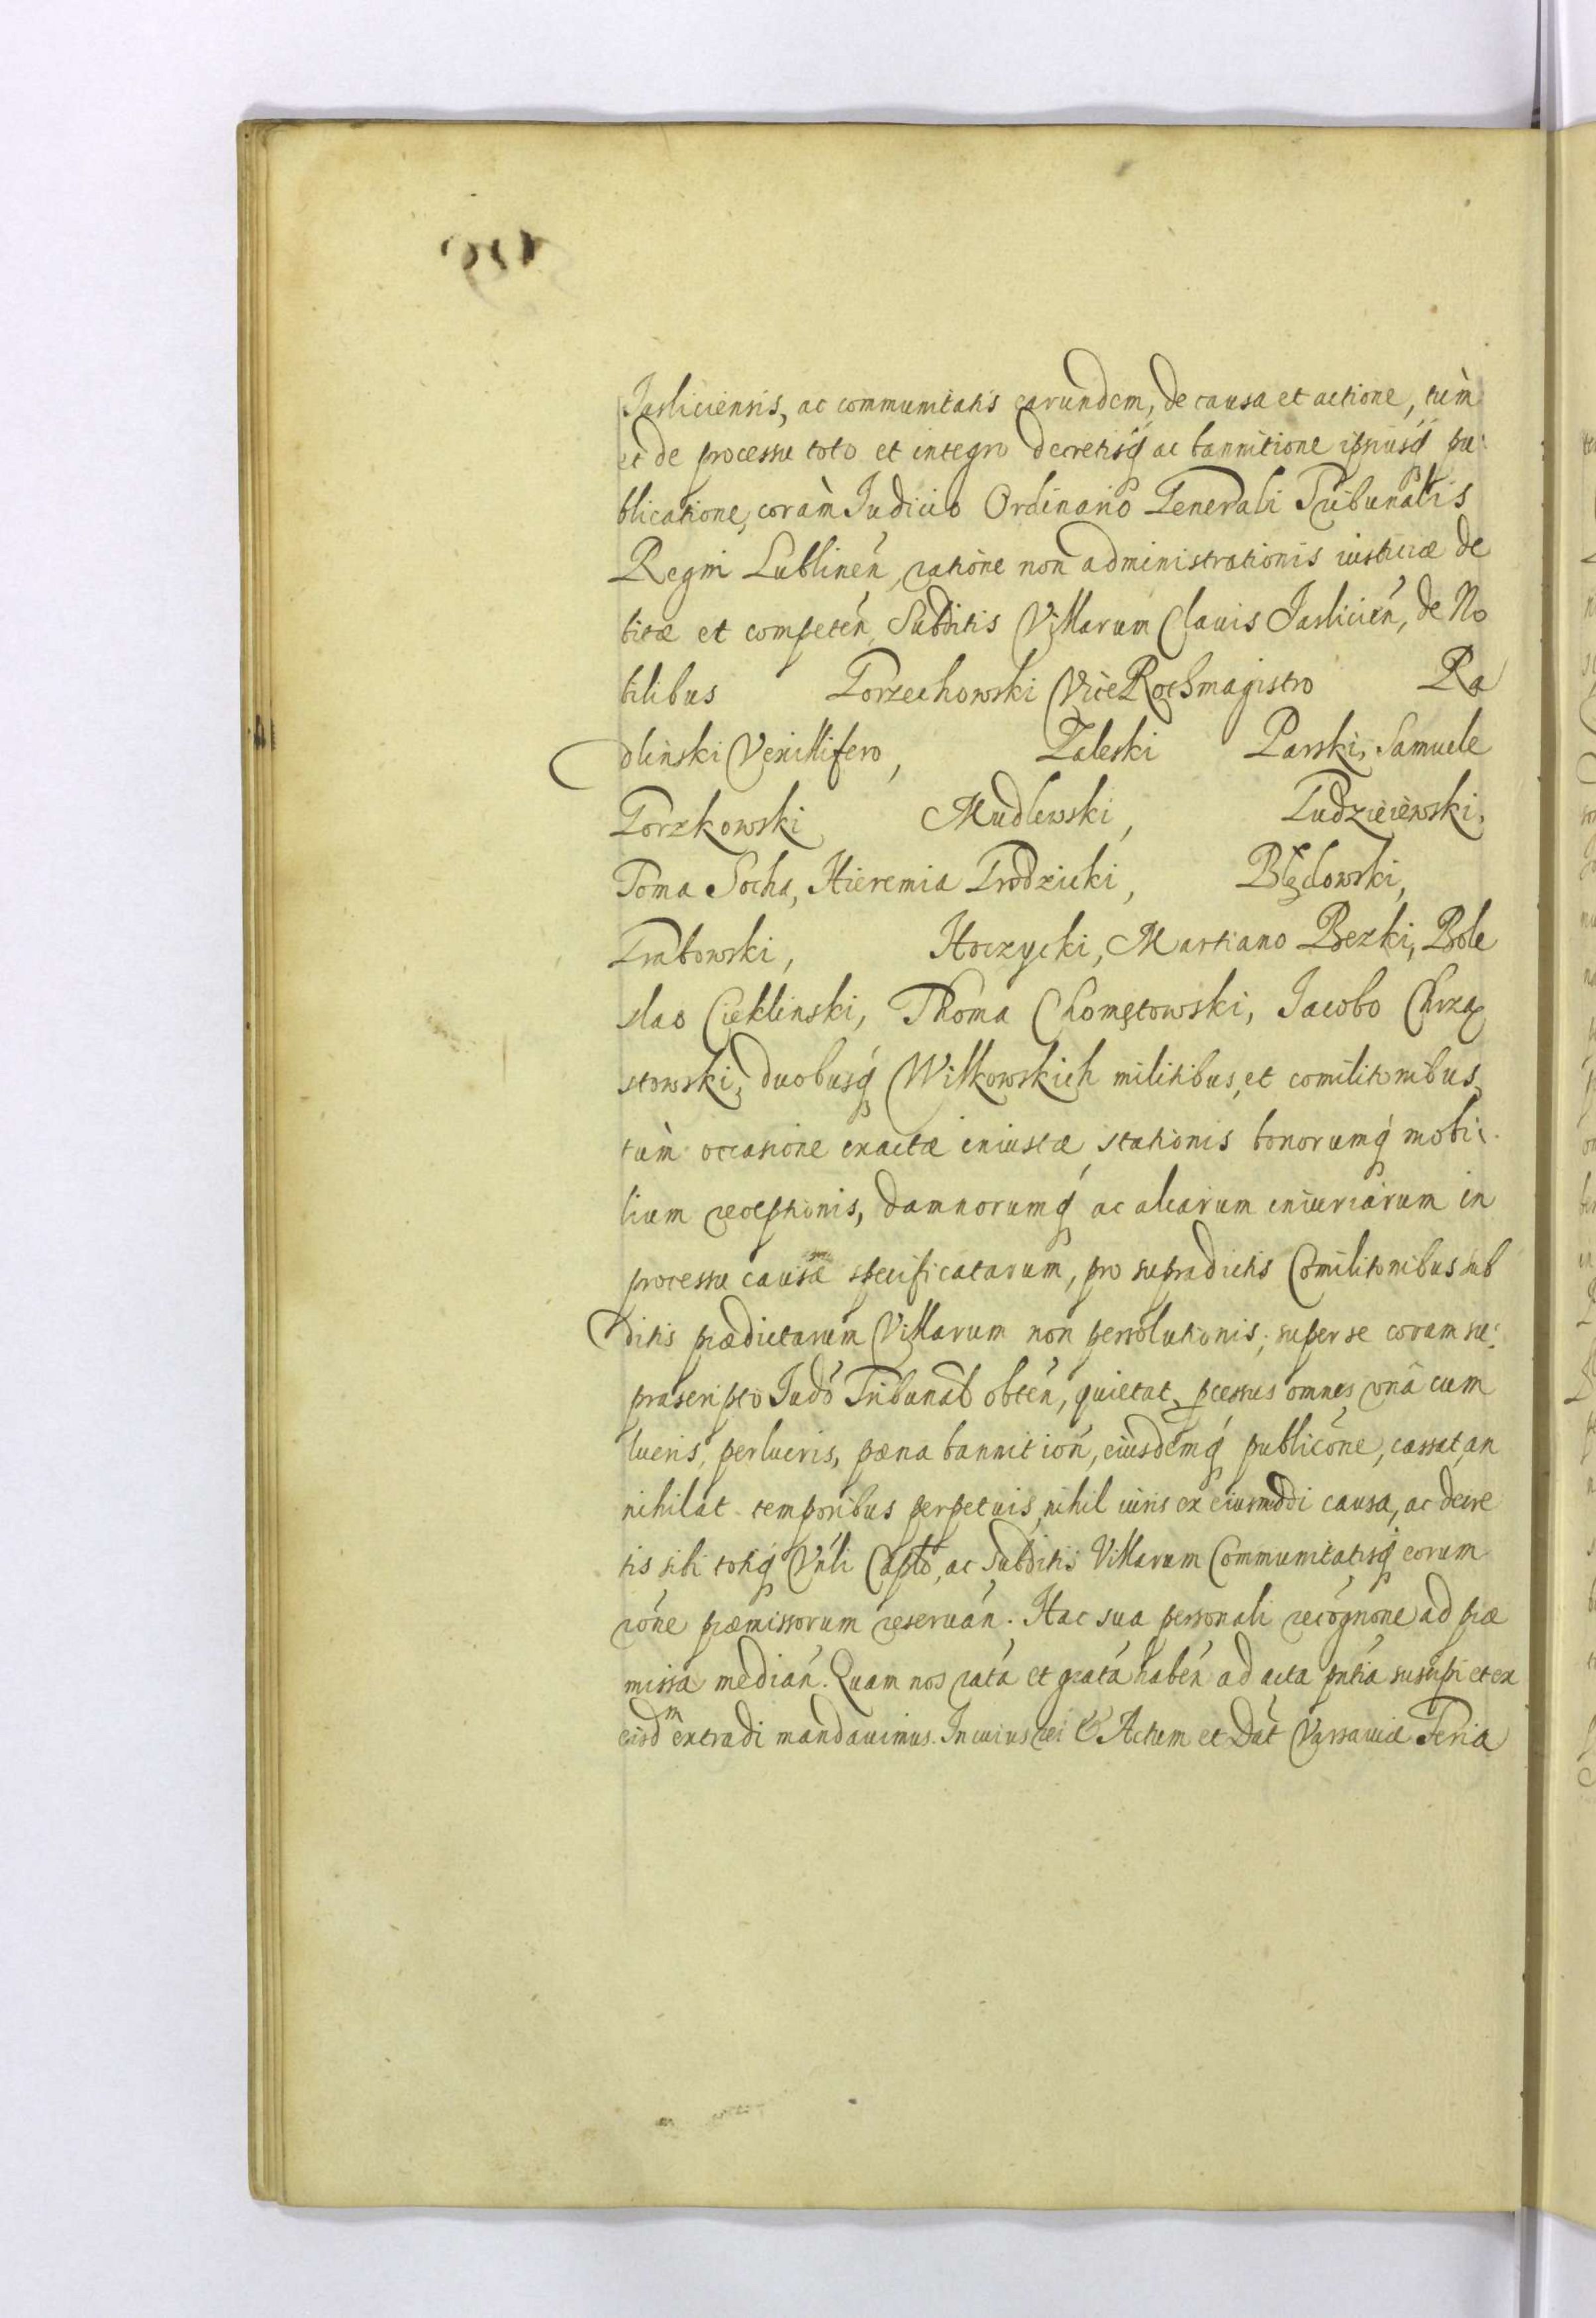 Jasliciensis, ac communitatis earundem, de causa et actione, tùm
et de processu toto et integro decretisq́ ac bannitione ipsiusq́ pu:
blicatione, coràm Judicio Ordinario Generali Tribunalis
Regni Lublinen̄, ratione non administrationis iustitiæ de
bitæ et competen̄, Subditis Villarum Clavis Jaslicien̄, de No
bilibus Gorzechowski ViceRochmagistro Ra
dlinski Vexillifero, Zaleski Parski, Samuele
Gorzkowski Mudlewski, Gudzieiewski,
Toma Socha, Hieremia Grodzicki, Błędowski,
Grabowski, Hoczycki, Martiano Bezki, Bole
slao Cieklinski, Thoma Chomętowski, Jacobo Chrzą
stowski, duobusq́ Wilkowskich militibus, et comilitonibus,
tùm occasione exactæ iniustæ stationis bonorumq́ mobi:
lium receptionis, damnorumq́ ac aliarum iniuriarum in
processu causæ specificatarum, pro supradictis Comilitonibus sub
ditis prædictarum Villarum non persolutionis, super se coram su:
prascripto Judō Tribunal obten̄, quietat, pcessus omnes unà cum
lucris, perlucris, pæna bannition̄, eiusdemq́ publicōne, cassat, an
nihilat temporibus perpetuis, nihil iuris ex eiusmodi causa, ac decre
tis sibi totiq́ Vn̄li Caplō, ac Subditis Villarum Communitatisq́ eorum
rōne præmissorum reservan̄. Hac sua personali recōgnone ad præ
missa median̄. Quam nos ratā et gratā haben̄ ad acta pn̄tia suscipi et ex
eisdm extradi mandavimus. In cuius rei & Actum et Dat Varsaviæ Feria